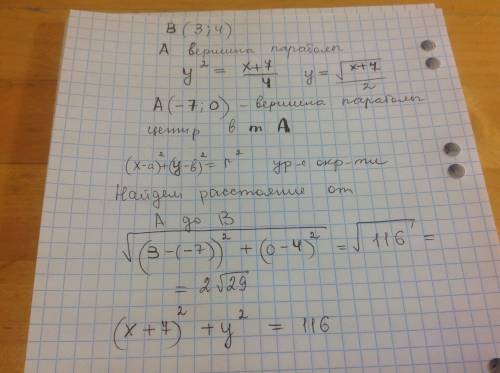 B (3; 4)
А вершина параболы
y² = (x+7)/4   y = √(x+7)/2
A(-7; 0) - вершина параболы
центр в т А
(x-a)²+(y-b)² = r²   ур-е окр-ти
Найдем расстояние от
А до В
√((3-(-7))² + (0-4)²) = √116 =
= 2√29
(x+7)² + y² = 116